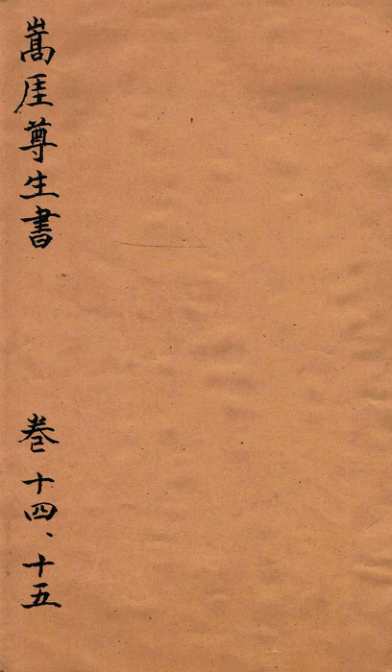 嵩厓尊生書
卷十四、十五